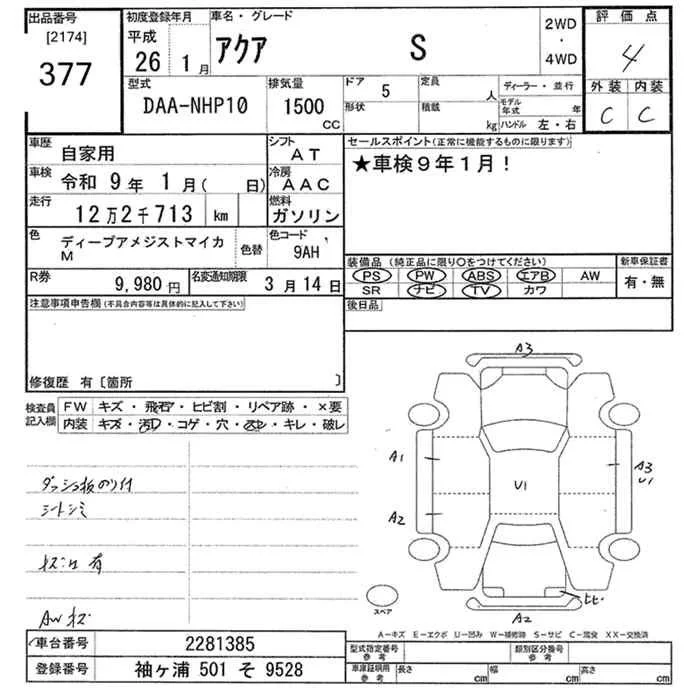 出品番号
[2174]
377
初度登録年月
平成
26 1月
車名・グレード
アクア S
2WD
・
4WD
評価点
4
外装 内装
C C
型式
DAA-NHP10
排気量
1500
CC
ドア 5
形状
定員
人
積載
kg
ディーラー・並行
モデル年式 年
ハンドル 左・右
車歴
自家用
シフト
AT
車検
令和 9年 1月( 日)
冷房
AAC
走行
12万2千713 km
燃料
ガソリン
色
ディープアメジストマイカM
色替
色コード
9AH
R券
9,980円
名変通知期限
3月14日
セールスポイント(正常に機能するものに限ります)
★車検9年1月!
装備品(純正品に限り○をつけてください)
PS PW ABS エアB AW
SR ナビ TV カワ
新車保証書
有・無
後日品
注意事項申告欄(不具合内容等は具体的に記入して下さい)
修復歴 有〔箇所 〕
検査員
記入欄
FW キズ・飛石・ヒビ割・リペア跡・×要
内装 キズ・汚レ・コゲ・穴・スレ・キレ・破レ
ダッシュ板のり付
シートシミ
有
AWキズ
A3
A1
A2
U1
A3
U1
A2
スペア
A-キズ E-エクボ U-凹み W-補修跡 S-サビ C-腐食 XX-交換済
車台番号
2281385
登録番号
袖ヶ浦 501 そ 9528
型式指定番号
参考
類別区分番号
参考
車庫証明用
参考
長さ cm 幅 cm 高さ cm